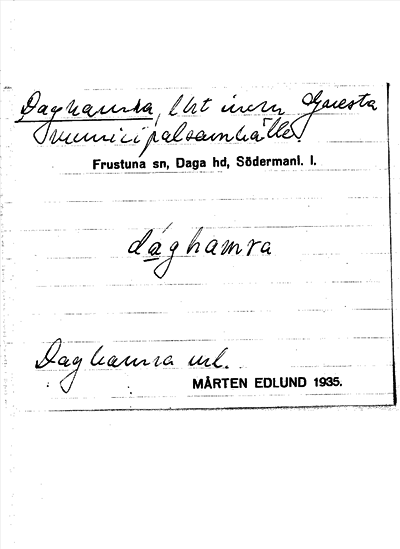 Daghamra, lht inom Gnesta
municipalsamhälle.
Frustuna sn, Daga hd, Södermanl. l.
dághamra
Daghamra url.
MÅRTEN EDLUND 1935.